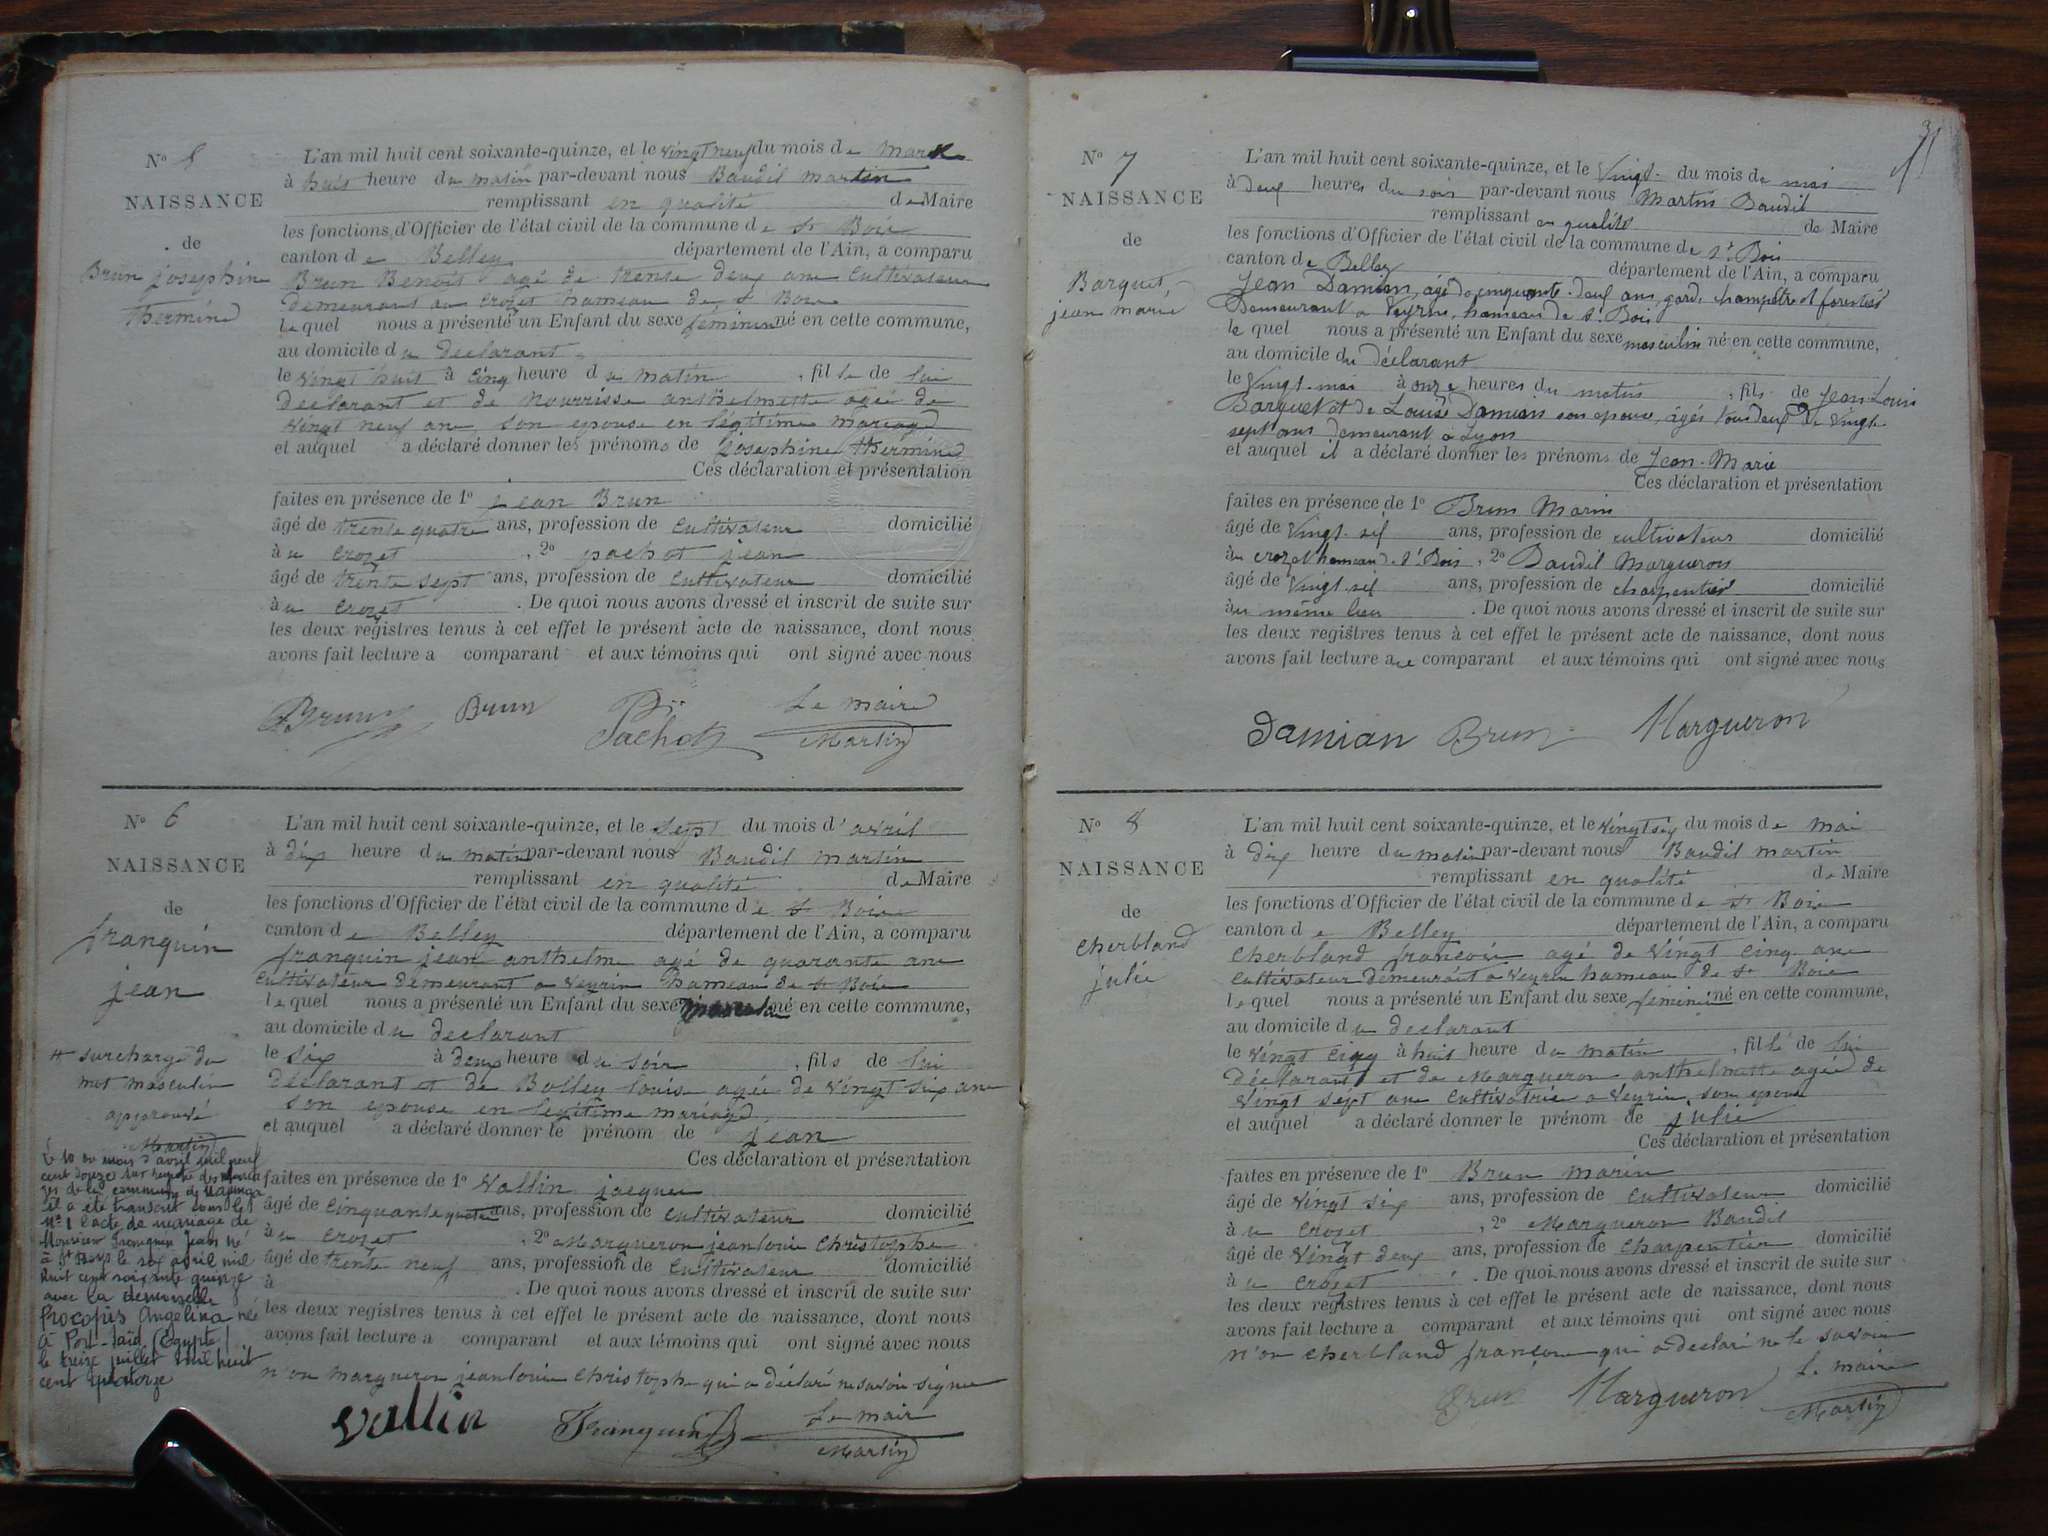 N° 5
NAISSANCE
de
Brun Josephine
thermine
L'an mil huit cent soixante-quinze, et le vingt neuf du mois de mars
à huit heure du matin par-devant nous Baudil martin
remplissant en qualité de Maire
les fonctions d'Officier de l'état civil de la commune de St Bois
canton de Belley département de l'Ain, a comparu
Brun Benoit agé de trente deux ans Cultivateur
demeurant au crozet hameau de St Bois
le quel nous a présenté un Enfant du sexe féminin né en cette commune,
au domicile du declarant
le vingt huit à cinq heure du matin , fille de lui
déclarant et de Nourrisse anthelmette agée de
vingt neuf ans, son epouse en légitime mariage
et auquel a déclaré donner les prénoms de Josephine thermine
Ces déclaration et présentation
faites en présence de 1° jean Brun
âgé de trente quatre ans, profession de cultivateur domicilié
au crozet , 2° pachot jean
âgé de trente sept ans, profession de cultivateur domicilié
au crozet . De quoi nous avons dressé et inscrit de suite sur
les deux registres tenus à cet effet le présent acte de naissance, dont nous
avons fait lecture a comparant et aux témoins qui ont signé avec nous
Brun Brun Pachot Le maire
Martin
N° 6
NAISSANCE
de
franquin
jean
# surcharge du
mot masculin
approuvé
Martin
Le 10 du mois d'avril mil neuf
cent douze sur registre des maria
ges de la commune de
il a été transcrit sous le
N° 1 l'acte de mariage de
Monsieur Franquin Jean né
à St Bois le six avril mil
huit cent soixante quinze
avec la demoiselle
Procopis Angelina né
à Port-Saïd (Egypte)
le treize juillet mil huit
cent
L'an mil huit cent soixante-quinze, et le sept du mois d'avril
à dix heure du matin par-devant nous Baudil martin
remplissant en qualité de Maire
les fonctions d'Officier de l'état civil de la commune de St Bois
canton de Belley département de l'Ain, a comparu
franquin jean anthelme agé de quarante ans
cultivateur demeurant a veyrin hameau de St Bois
le quel nous a présenté un Enfant du sexe masculin né en cette commune,
au domicile du declarant
le six à deux heure du soir , fils de lui
déclarant et de Bolley louise agée de vingt six ans
son epouse en legitime mariage
et auquel a déclaré donner le prénom de jean
Ces déclaration et présentation
faites en présence de 1° Vallin jacques
âgé de cinquante quatre ans, profession de cultivateur domicilié
au crozet , 2° Margueron jean louis Christophe
âgé de trente neuf ans, profession de cultivateur domicilié
à . De quoi nous avons dressé et inscrit de suite sur
les deux registres tenus à cet effet le présent acte de naissance, dont nous
avons fait lecture a comparant et aux témoins qui ont signé avec nous
n'on margueron jean louis Christophe qui a déclaré ne savoir signer
Vallin Franquin Le mair
Martin
N° 7
NAISSANCE
de
Barquet,
jean marie
L'an mil huit cent soixante-quinze, et le vingt du mois de mai
à deux heures du soir par-devant nous Martin Baudil
remplissant en qualité de Maire
les fonctions d'Officier de l'état civil de la commune de St Bois
canton de Belley département de l'Ain, a comparu
Jean Damian, âgé de cinquante-deux ans, garde champêtre et forestier
Demeurant à Veyrin, hameau de St Bois
le quel nous a présenté un Enfant du sexe masculin né en cette commune,
au domicile du déclarant
le vingt mai à onze heures du matin , fils de Jean Louis
Barquet et de Louise Damian son épouse, âgés tous deux de vingt-
sept ans demeurant à Lyon
et auquel il a déclaré donner les prénoms de Jean-Marie
Ces déclaration et présentation
faites en présence de 1° Brun Marin
âgé de vingt-six ans, profession de cultivateur domicilié
au crozet hameau de St Bois , 2° Baudil Margueron
âgé de vingt-six ans, profession de charpentier domicilié
au même lieu . De quoi nous avons dressé et inscrit de suite sur
les deux registres tenus à cet effet le présent acte de naissance, dont nous
avons fait lecture au comparant et aux témoins qui ont signé avec nous
Damian Brun Margueron
N° 8
NAISSANCE
de
cherbland
julie
L'an mil huit cent soixante-quinze, et le vingt six du mois de mai
à dix heure du matin par-devant nous Baudil martin
remplissant en qualité de Maire
les fonctions d'Officier de l'état civil de la commune de St Bois
canton de Belley département de l'Ain, a comparu
cherbland francois agé de vingt cinq ans
cultivateur demeurant a veyrin hameau de St Bois
le quel nous a présenté un Enfant du sexe féminin né en cette commune,
au domicile du declarant
le vingt cinq à huit heure du matin , fille de lui
déclarant et de Margueron anthelmette agée de
vingt sept ans cultivatrice a veyrin, son epouse
et auquel a déclaré donner le prénom de julie
Ces déclaration et présentation
faites en présence de 1° Brun marin
âgé de vingt six ans, profession de cultivateur domicilié
au crozet , 2° Margueron Baudil
âgé de vingt deux ans, profession de charpentier domicilié
au crozet . De quoi nous avons dressé et inscrit de suite sur
les deux registres tenus à cet effet le présent acte de naissance, dont nous
avons fait lecture a comparant et aux témoins qui ont signé avec nous
n'on cherbland francois qui a declaré ne le savoir
Brun Margueron Le maire
Martin